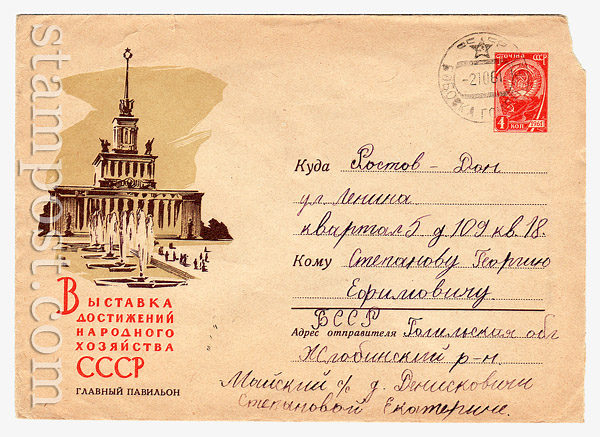 ПОЧТА СССР
4 КОП. 1961
-2.10.61
Куда Ростов-Дон
ул Ленина
квартал 5 д 109 кв. 18.
Кому Степанову Георгию
Ефимовичу.
БССР
Адрес отправителя Гомельская обл
Жлобинский р-н
Майский с/с д. Денисковичи
Степановой Екатерине.
ВЫСТАВКА
ДОСТИЖЕНИЙ
НАРОДНОГО
ХОЗЯЙСТВА
СССР
ГЛАВНЫЙ ПАВИЛЬОН
stampost.com
stampost.com